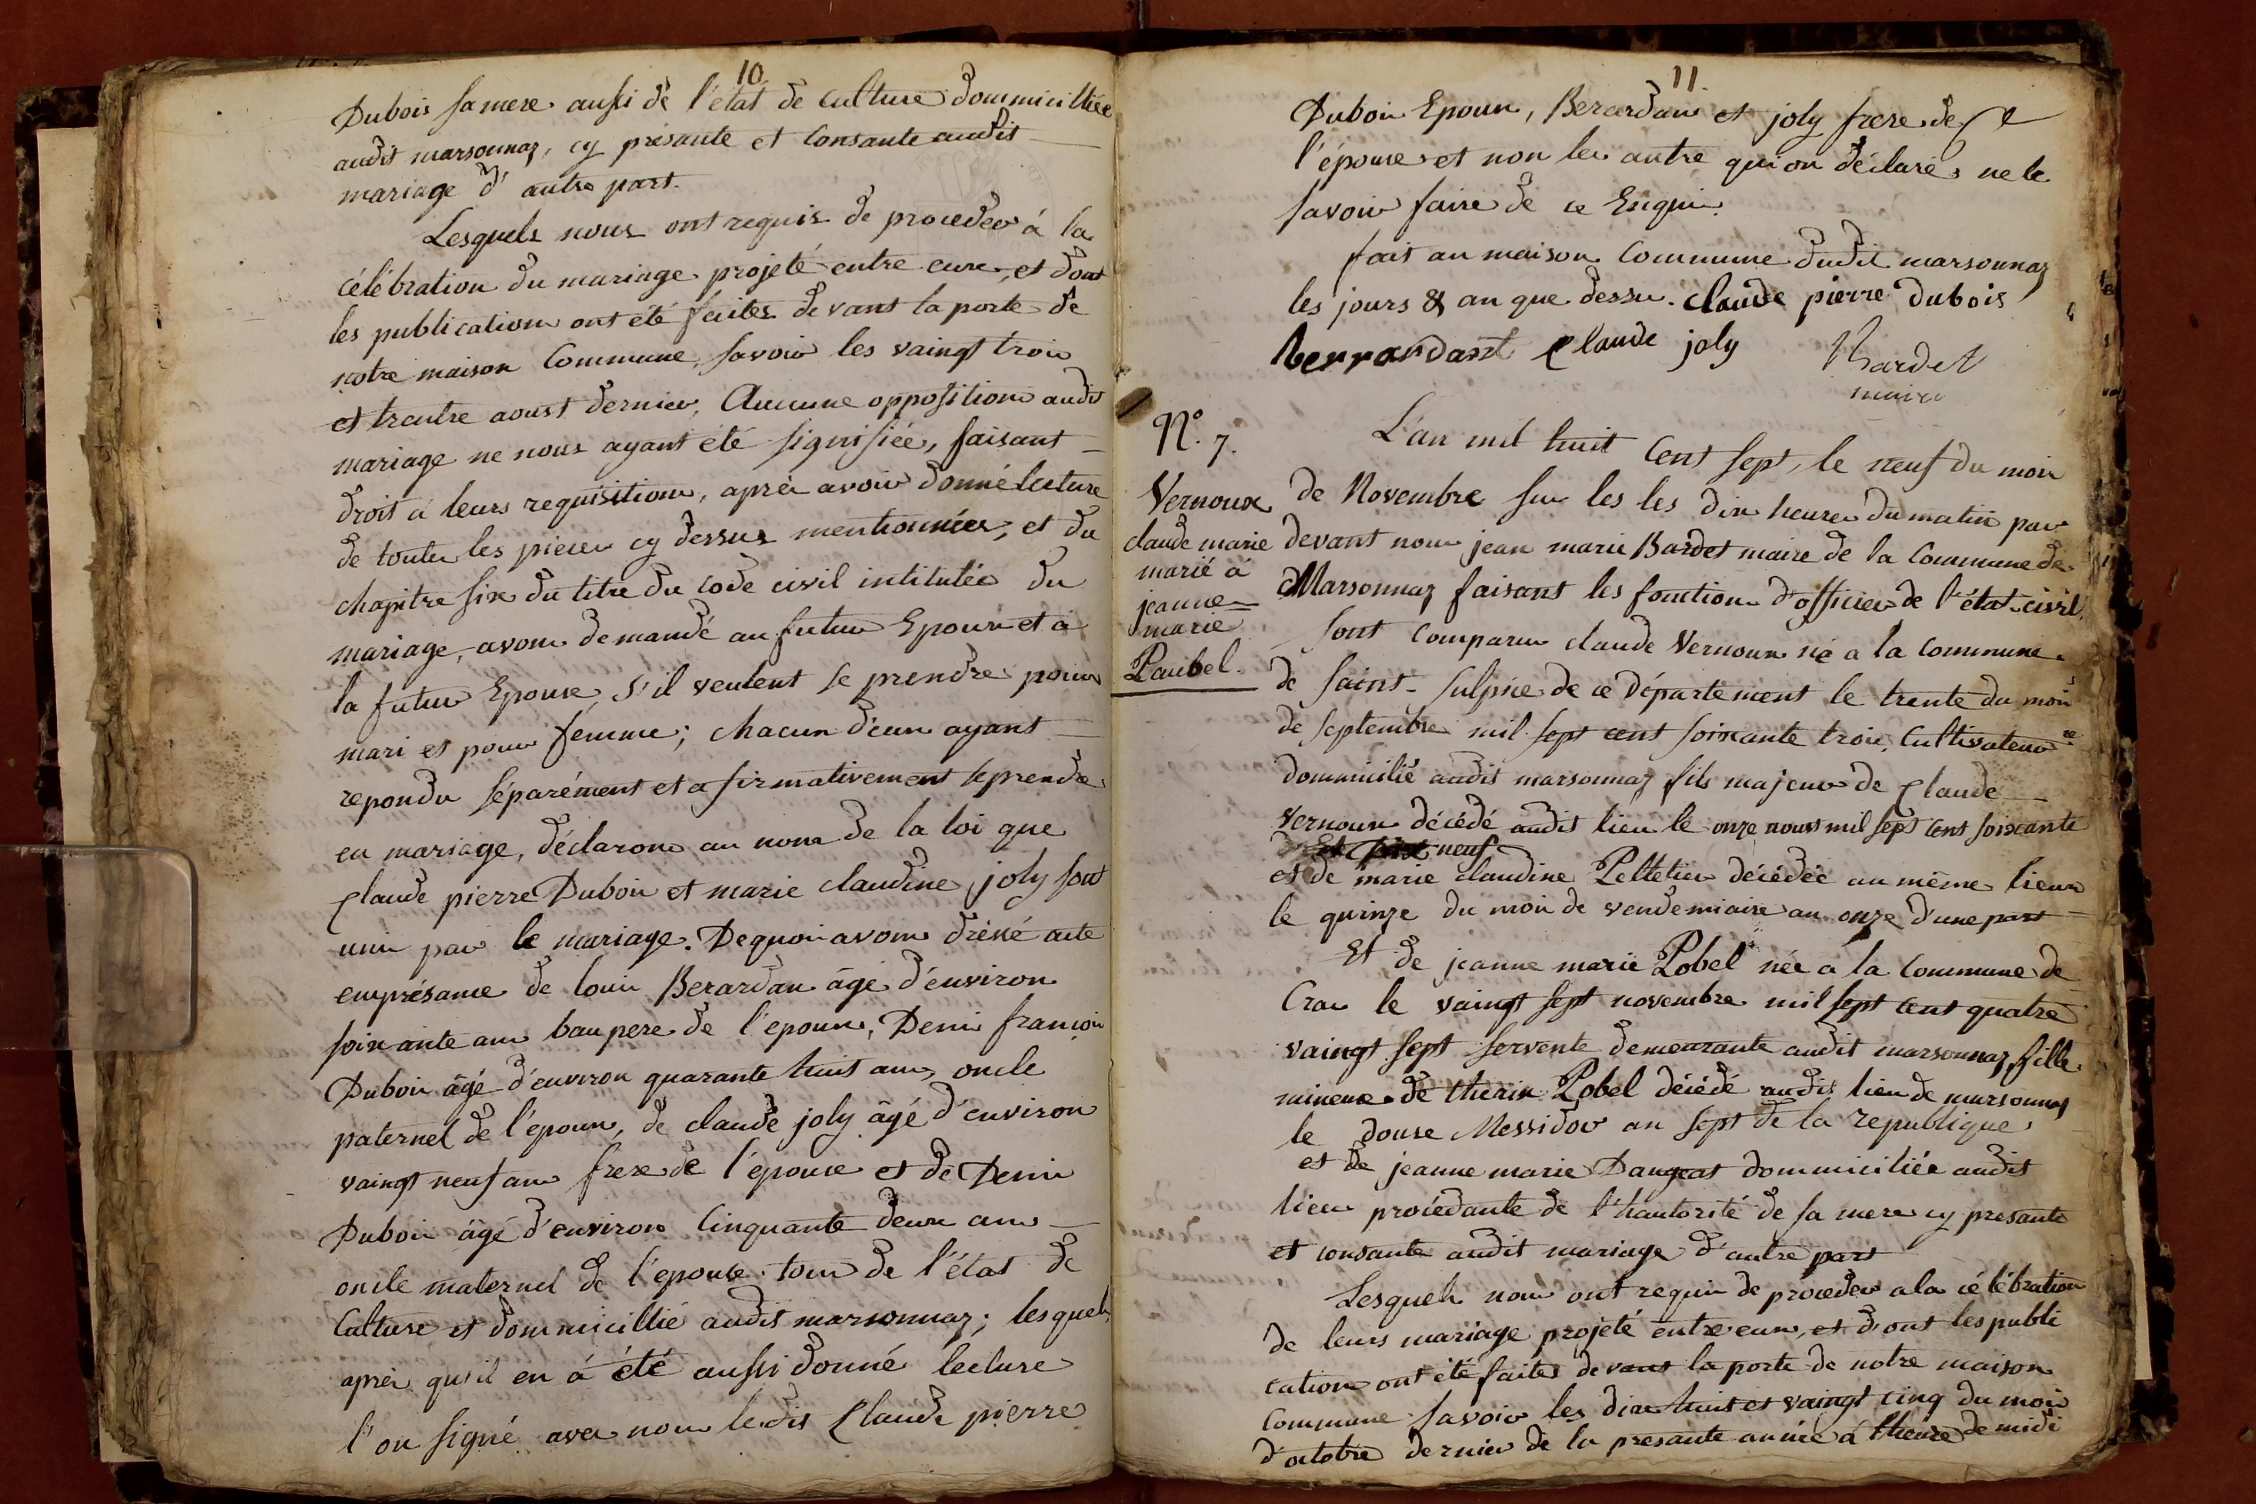 10
Dubois sa mere aussi de l'état de culture dommicilliée
audit marsonnaz, cy présante et Consante audit
mariage d'autre part.
Lesquels nous ont requis de proceder á la
célébration du mariage projeté entre eux, et dont
les publication ont été faites devant la porte de
notre maison Commune, savoir les vaingt trois
et trentre aoust dernier, Aucune opposition audit
mariage ne nous ayant été signifiée, faisant
droit a leurs requisition, aprés avoir donné lecture
de toutes les pieces cy dessus mentionnées, et du
chapitre six du titre du code civil intitulée du
mariage, avons demandé au futur Epoux et á
la future Epouse, s'il veulent se prendre pour
mari et pour femme; chacun d'eux ayant
repondu séparément et afirmativement se prendre
en mariage, déclarons au nom de la loi que
Claude pierre Dubois et marie claudine joly sont
unis par le mariage. De quoi avons dréssé acte
emprésance de louis Berardan âgé d'environ
soixante ans baupere de l'epoux, Denis françois
Dubois âgé d'environ quarante huit ans, oncle
paternel de l'époux, de claude joly âgé d'environ
vaingt neuf ans frere de l'epouse et de Denis
Dubois âgé d'environ Cinquante deux ans
oncle maternel de l'epouse tous de l'état de
Culture et dommicillié audit marsonnaz; lesquels
aprés qu'il en á été aussi donné lecture
l'on signé avec nous ledit Claude pierre
11
Dubois Epoux, Berardan et joly frere de
l'épouse et non les autre qui on déclarés ne le
savoir faire de ce Enquis.
fait an maison Commune dudit marsonnaz
les jours & an que dessu. claude pierre dubois
berrardant Claude joly Bardet
maire
N.° 7.
Vernoux
claude marie
marié á
jeanne
marie
Paubel
L'an mil huit Cent sept, le neuf du mois
de Novembre sur les les dix heures du matin par
devant nous jean marie Bardet maire de la Commune de
Marsonnaz faisant les fonction d'officier de l'état civil
sont comparu claude Vernoux né a la Commune
de saint-sulpice de ce département le trente du mois
de septembre mil sept cent soixante trois, Cultivateur
dommicilié audit marsonnaz fils majeur de Claude
Vernoux décédé audit lieu le onze aoust mil sept cent soixante
neuf
et de marie claudine Pelletier décédée au même lieux
le quinze du mois de vendemiaire an onze d'une part
Et de jeanne marie Pobel née á la Commune de
Cras le vaingt sept novembre mil sept cent quatre
vaingt sept servente demeurante audit marsonnaz, fille
mineur de Pobel décédé audit lieu de marsonnaz
le douse Messidor an sept de la republique
et de jeanne marie Dangeat dommiciliée audit
lieu procédante de l'hautorité de sa mere cy presante
et consante audit mariage d'autre part
Lesquels nous ont requis de proceder a la célébration
de leurs mariage projeté entre eux, et dont les publi
cation ont été faites devant la porte de notre maison
Commune savoir les dix huit et vaingt cinq du mois
d'octobre dernier de la presante année á l'heure de midi